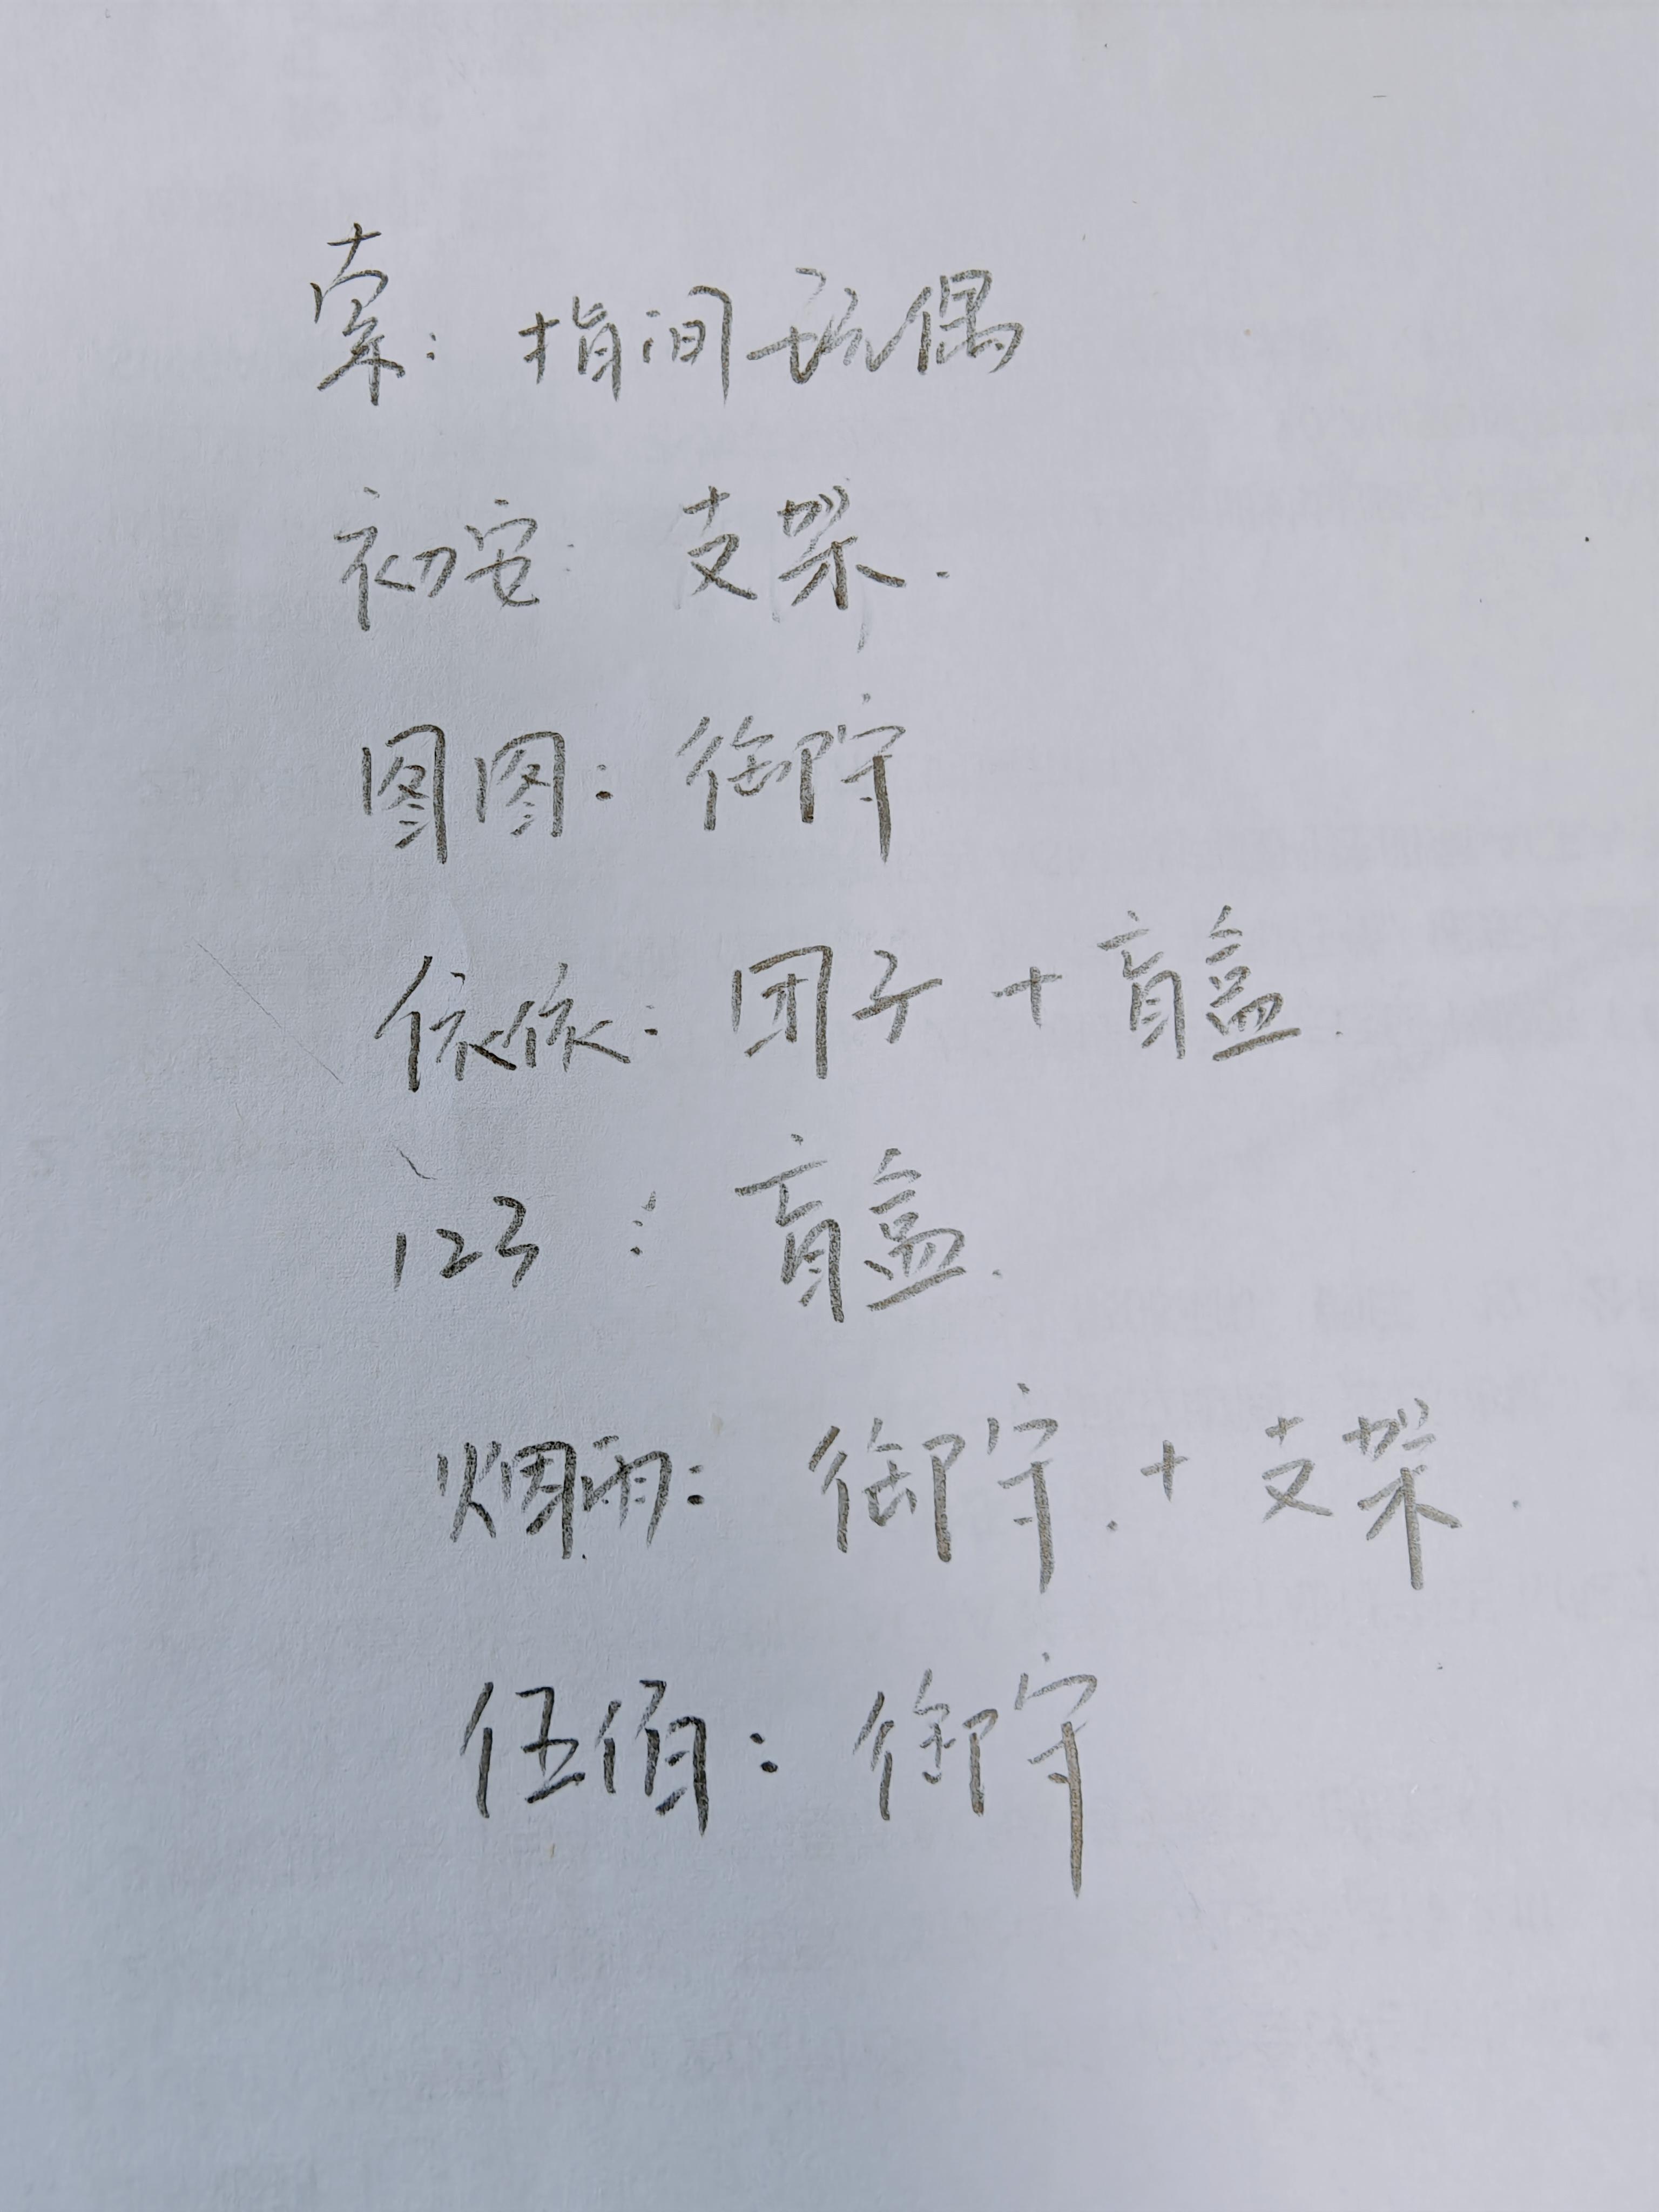 索：指间玩偶
初安：支架.
图图：御守
依依：团子+盲盒.
123：盲盒.
烟雨：御守.+支架.
伍佰：御守